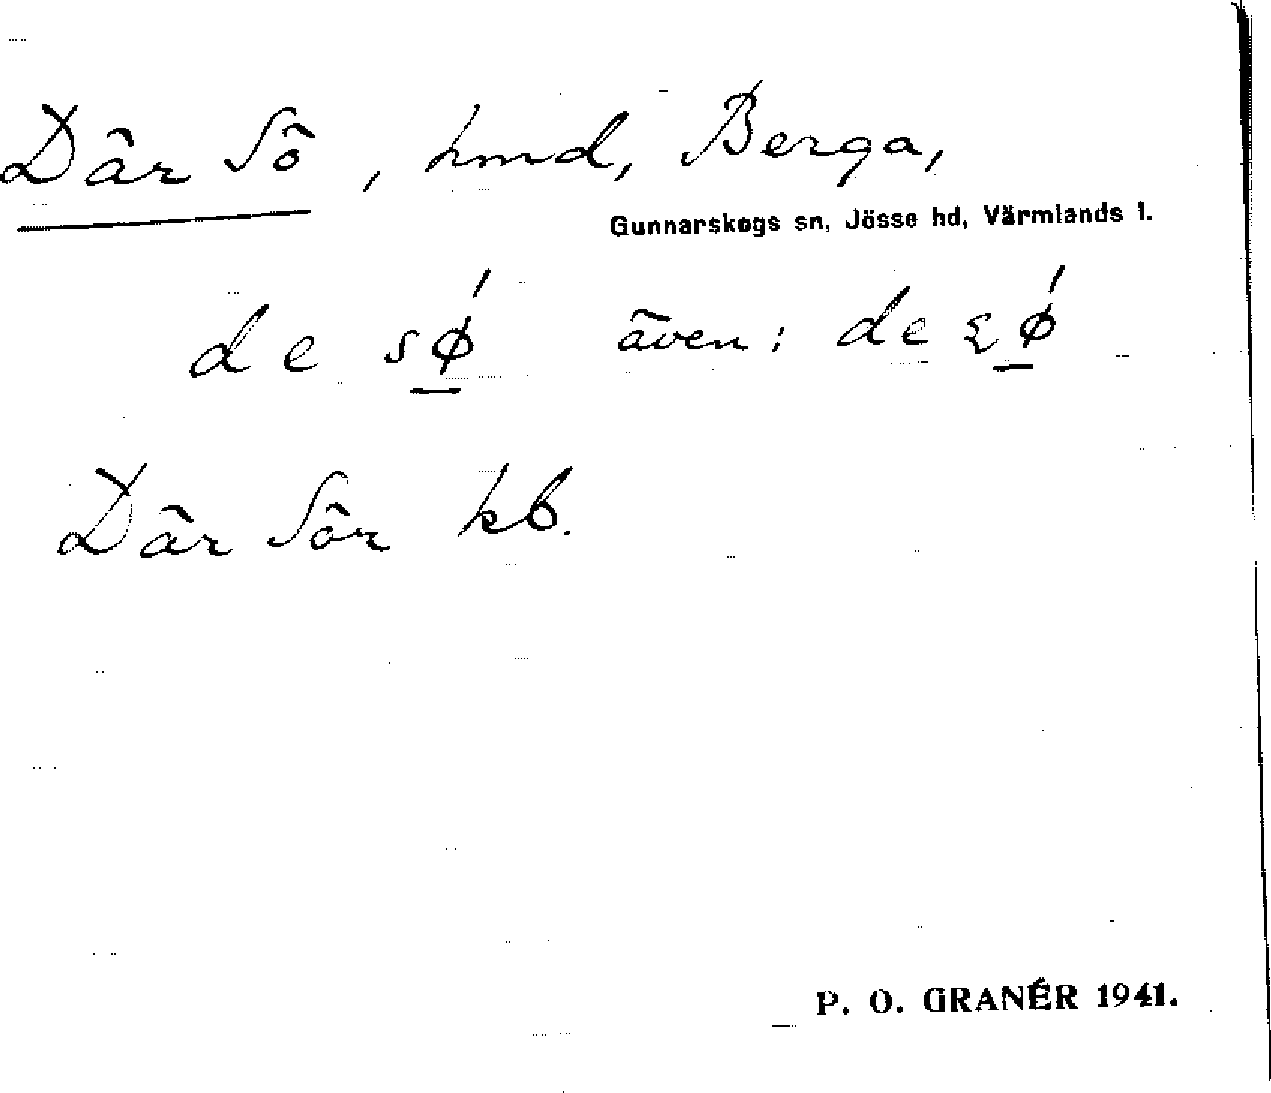 Där Sö, hmd, Berga,
Gunnarskogs sn, Jösse hd, Värmlands l.
de sǿ̲ även: de ꜿǿ̲
Där Sör kb.
P. O. GRANÉR 1941.